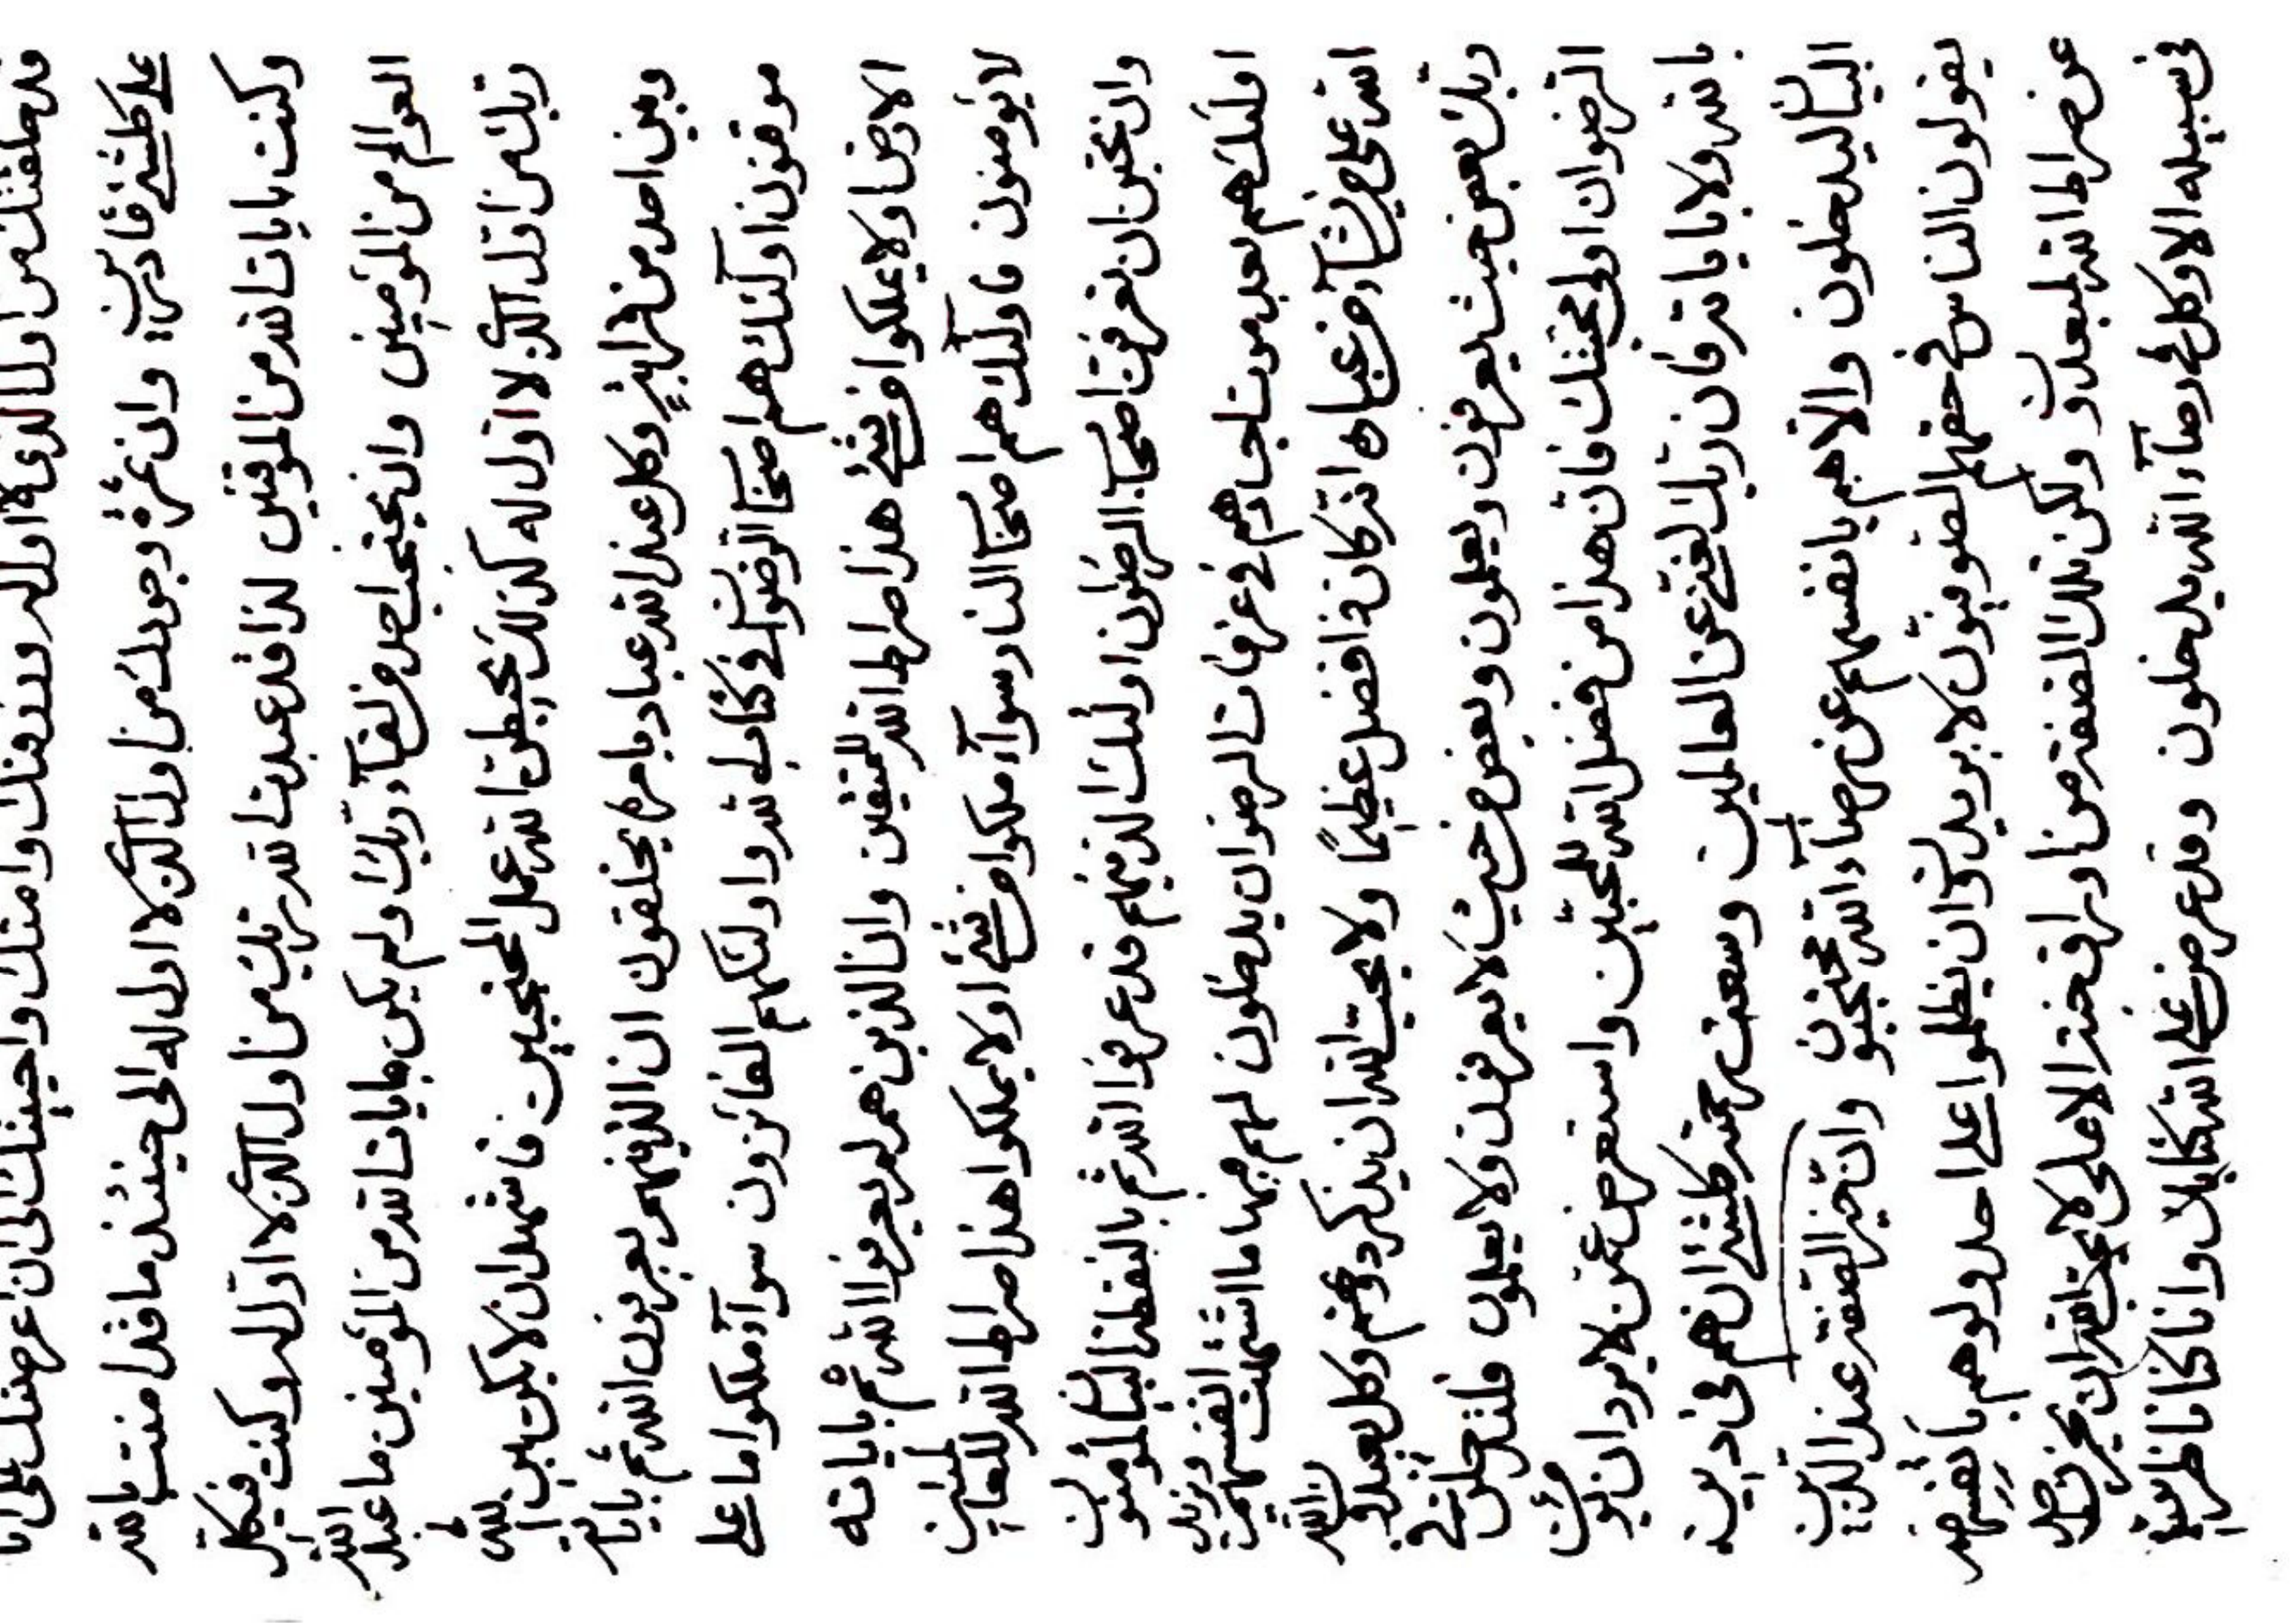 قد خلقتك من اول الذی لا اول له ورزقتك وامتك واحییتك الی ان عرضتك علی
علی کلشئ قادرین وان ثمرة وجودك من اول الذی لا اول له الی حینئذ ما قد امنت بالله
وکنت بایات الله من الموقنین لذا قد عبدت الله ربك من اول الذی لا اول له وکنت فیکل
العوالم من المؤمنین وان یحتجب احد من لقاء ربك ولم یکن بایات الله من المؤمنین ما عبد الله
ربك من اول الذی لا اول له کذلك یحبطن الله عمل المحتجبین فاشهد ان لا یکن بین الله
وبین احد من قرابة وکل عند الله عباد بامره یخلقون ان الذینهم یعرفون الله ثم بایاته
موقنون اولئك هم اصحاب الرضوان فی کتاب الله واولئکهم الفائزون سواء ملکوا ما علی
الارض او لا یملکوا من شئ هذا صراط الله للمتقین وان الذین هم لم یعرفوا الله ثم بایاته
لا یؤمنون فاولئك هم اصحاب النار سواء ملکوا من شئ او لا یملکوا هذا صراط الله للعالمین
وان تحبن ان تعرفن اصحاب الرضوان اولئك الذینهم قد عرفوا الله ثم بالنقطة البیان لمؤمنون
اولئك هم بعد موت اجسادهم فی غرفات الرضوان یدخلون لهم فیها ما اشتهت انفسهم ویزیدن
الله علی من یشاء من عباده انه کان ذا فضل عظیما ولا یحب الله ان یذکر دونهم وکل یعبدون الله
ربك بعض حیث یعرفون ویعلمون وبعض من حیث لا یعرفون ولا یعلمون فلتدخلن فی
الرضوان اولی محبتك فان هذا من فضل الله للمحبین واستعرض عمن لا یرد ان یؤمن
بالله ولا بایاته فان ربك لغنی عن العالمین وسعت رحمته کلشئ ان هم فی دین
البیان لیدخلون والا هم بانفسهم عن رضاء الله محتجبون وان خیر الصفة عند الذین
یقولون الناس فی حقهم الصوفیون لا یریدون ان یظلموا علی احد ولو هم بانفسهم
عن صراط الله لمبعدون ولکن تلك الصفة من الاعلی لا یحب الله ان یحزن
فی سبیله الا وکل فی رضاء الله یدخلون وقد عرض علی الله کتابك وانا کنا ناظرین